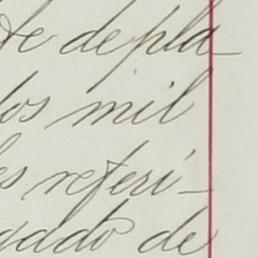 te de pla-
dos mil
es referi-
gado de